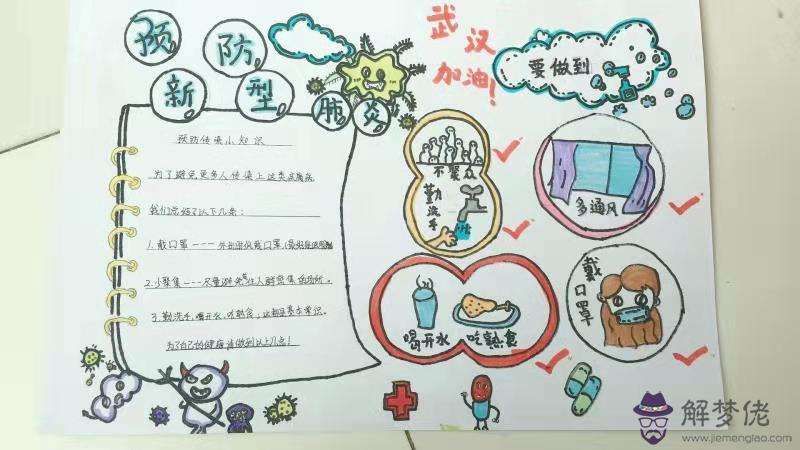 预防
新型肺炎
武汉
加油!
要做到
预防传染小知识
为了避免更多人传染上这类病
我们总结了以下几条:
1.戴口罩---外出要佩戴口罩
2.少聚集---尽量避免去人群密集的场所。
3.勤洗手,喝开水,吃熟食,这都是基本常识。
为了自己的健康请做到以上几点!
不聚众
勤洗手
多通风
喝开水 吃熟食
戴口罩
解梦佬
www.jiemenglao.com